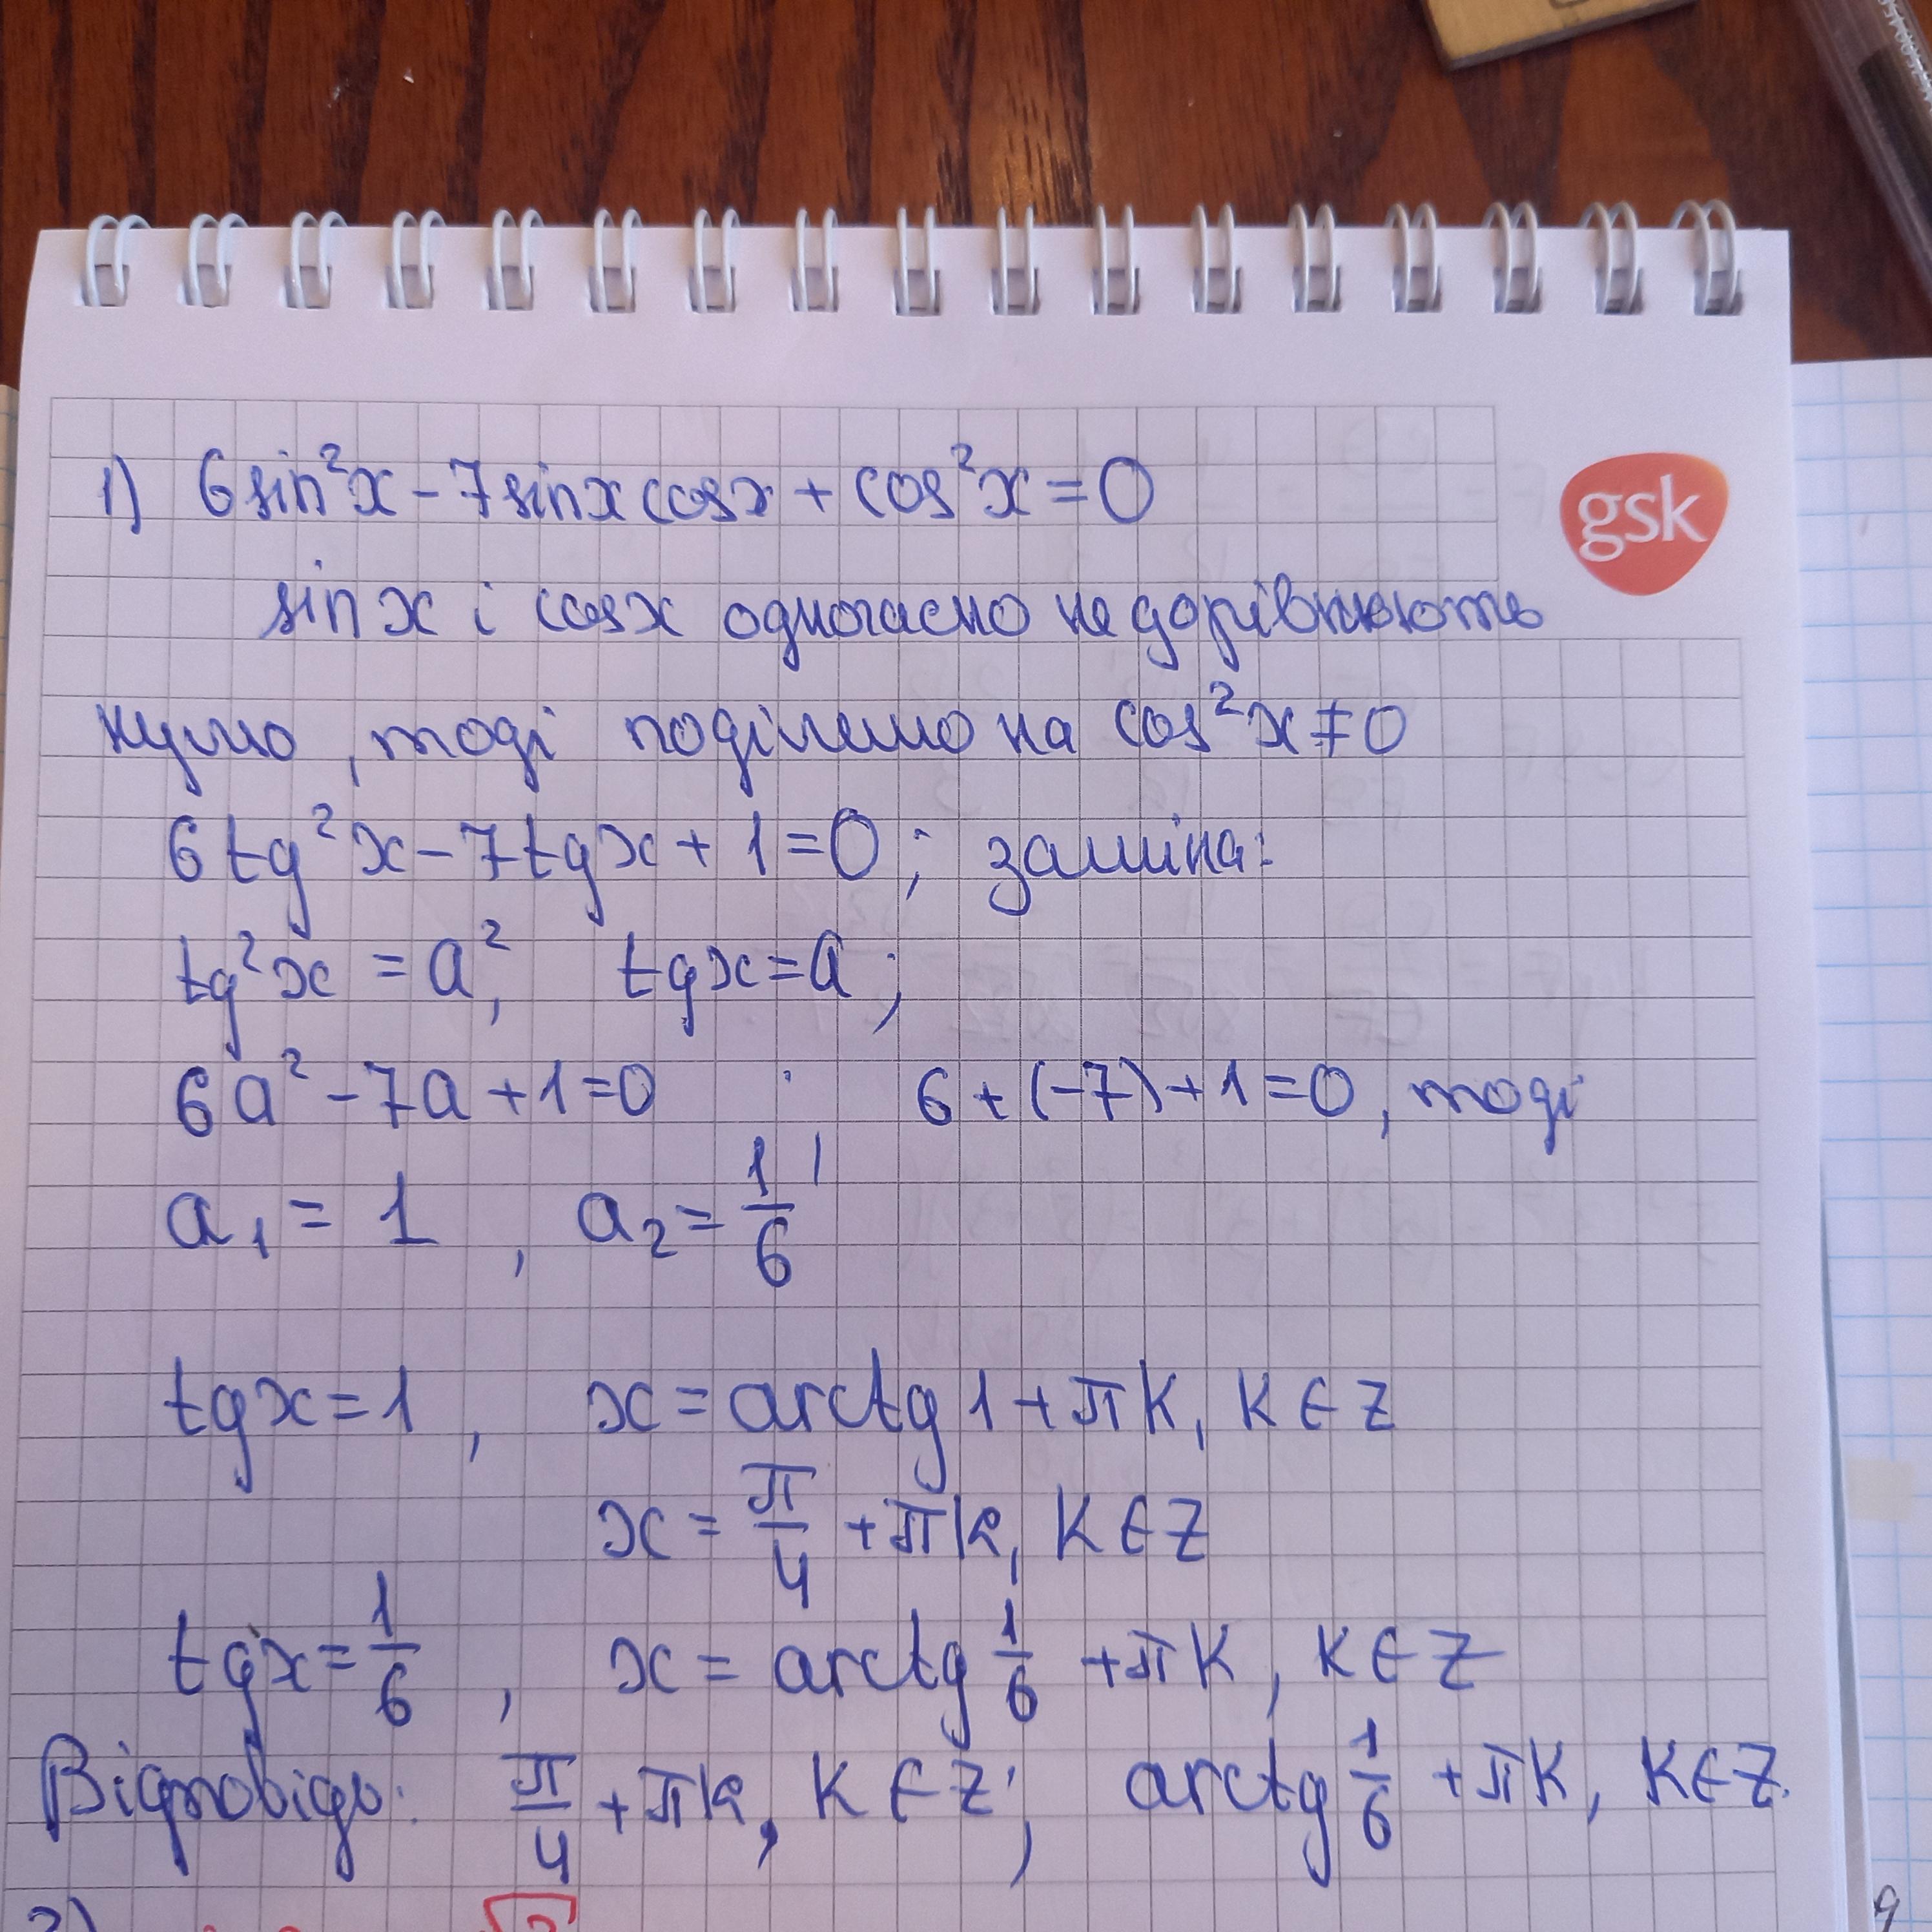 1) 6sin²x - 7sinxcosx + cos²x = 0
gsk
sin x і cosx одночасно не дорівнюють
нулю, тоді поділемо на cos²x ≠ 0
6tg²x - 7tgx + 1 = 0; заміна:
tg²x = a², tgx = a;
6a² - 7a + 1 = 0 6 + (-7) + 1 = 0, тоді
a₁ = 1, a₂ = 1/6
tgx = 1, x = arctg 1 + πk, k ∈ Z
x = π/4 + πk, k ∈ Z
tgx = 1/6, x = arctg 1/6 + πk, k ∈ Z
Відповідь: π/4 + πk, k ∈ Z; arctg 1/6 + πk, k ∈ Z.